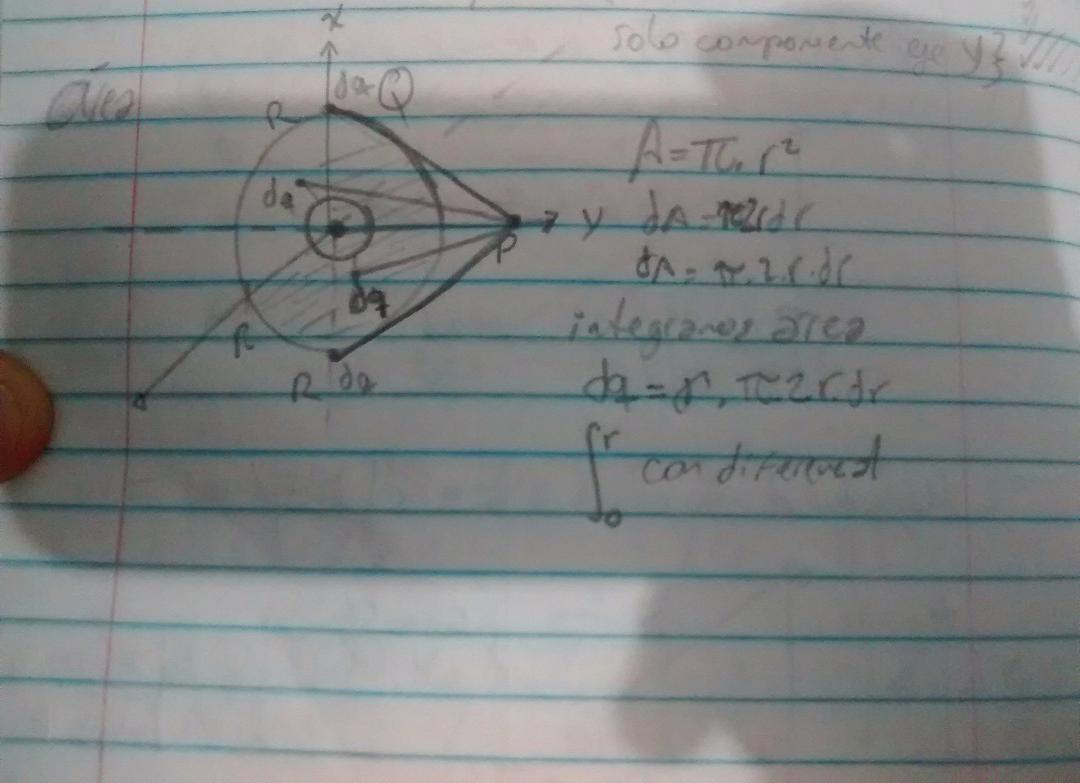 solo componente eje y
Área
x
dq Q
R
dq
y
P
dq
R
R dq
A = π. r²
dA = π2rdr
dA = π.2.r.dr
integramos área
dq = σ. π.2.r.dr
∫₀ʳ con diferencial